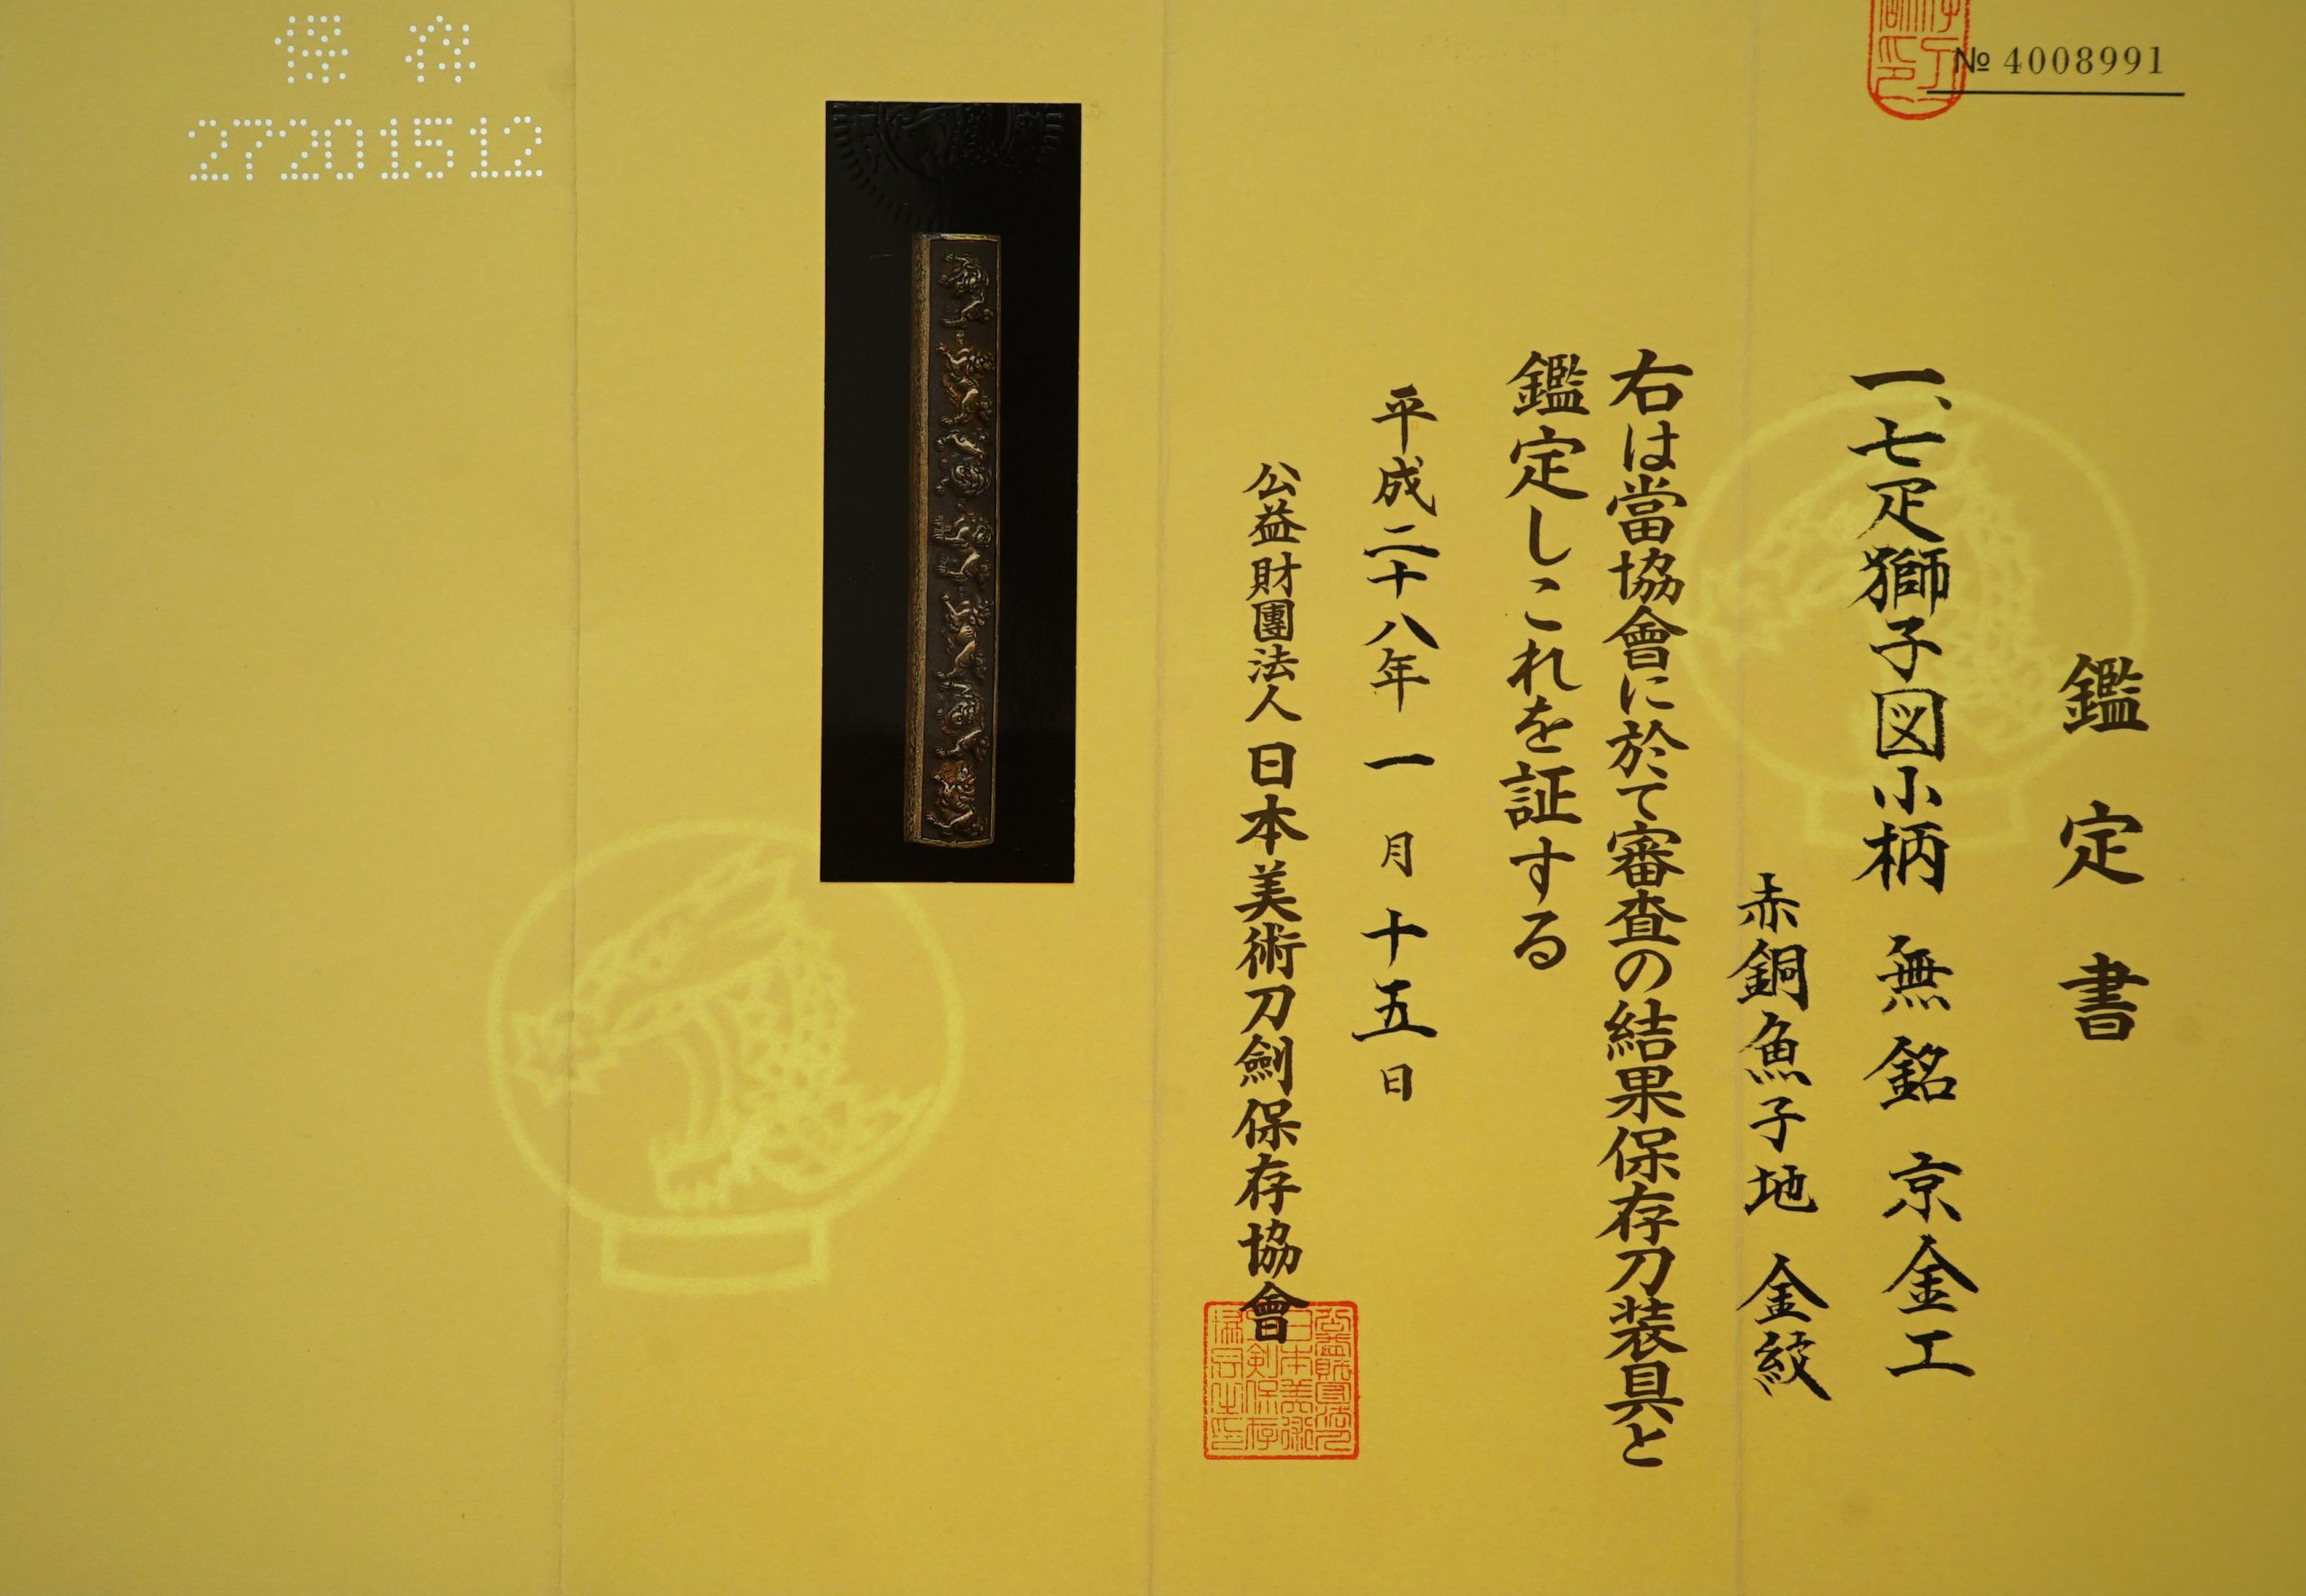 № 4008991
鑑定書
一、七疋獅子図小柄 無銘 京金工
赤銅魚子地 金紋
右は當協會に於て審査の結果保存刀装具と
鑑定しこれを証する
平成二十八年一月十五日
公益財團法人日本美術刀劍保存協會
保存
27201512